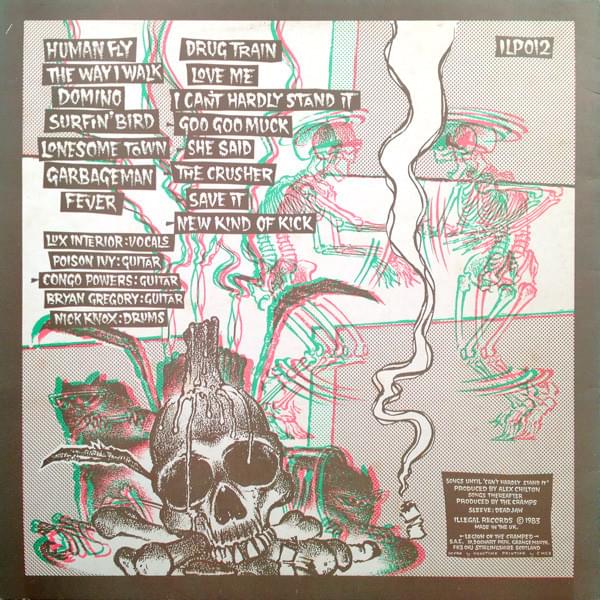 HUMAN FLY
THE WAY I WALK
DOMINO
SURFIN' BIRD
LONESOME TOWN
GARBAGEMAN
FEVER
DRUG TRAIN
LOVE ME
I CAN'T HARDLY STAND IT
GOO GOO MUCK
SHE SAID
THE CRUSHER
SAVE IT
NEW KIND OF KICK
ILP012
LUX INTERIOR: VOCALS
POISON IVY: GUITAR
CONGO POWERS: GUITAR
BRYAN GREGORY: GUITAR
NICK KNOX: DRUMS
SONGS UNTIL 'CAN'T HARDLY STAND IT'
PRODUCED BY ALEX CHILTON
SONGS THEREAFTER
PRODUCED BY THE CRAMPS
SLEEVE: DEADJAW
ILLEGAL RECORDS © 1983
MADE IN THE UK.
LEGION OF THE CRAMPED
S.A.E.
STIRLINGSHIRE SCOTLAND